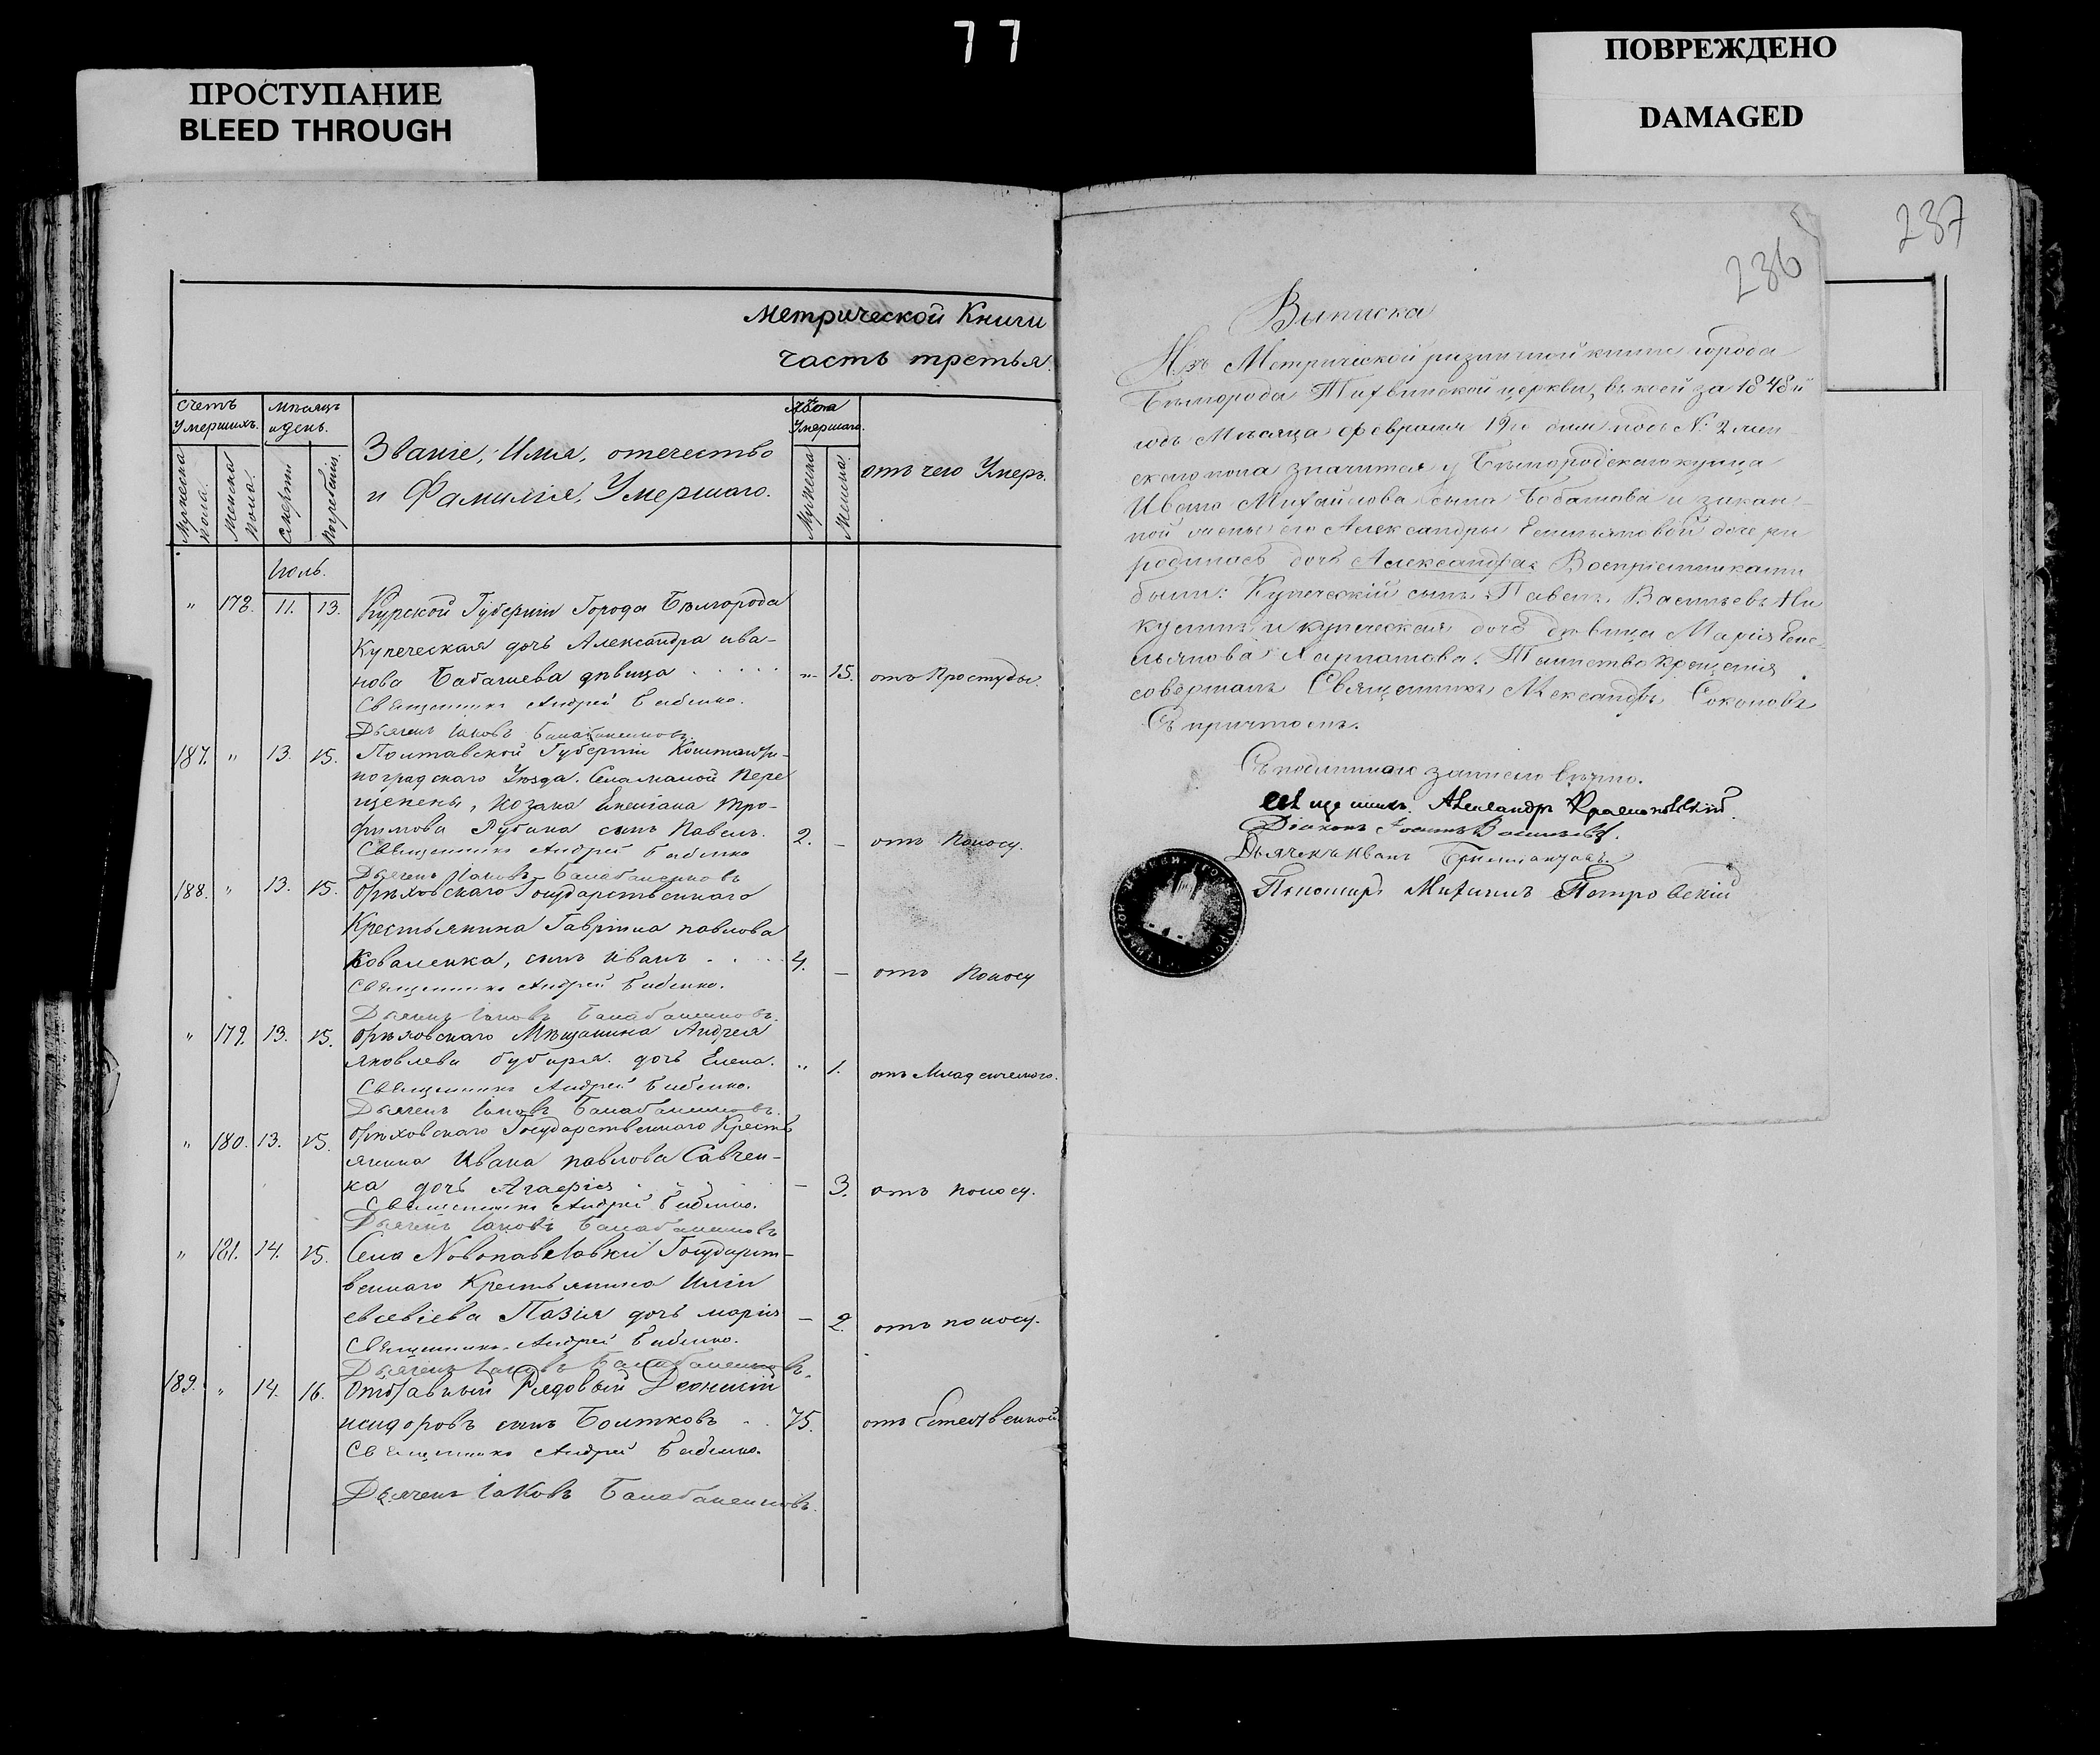 77
ПРОСТУПАНИЕ
BLEED THROUGH
ПОВРЕЖДЕНО
DAMAGED
Метрической Книги
часть третья.
Счетъ
Умершихъ.
Мѣсяцъ
и день.
Званіе, Имя, отчество
и Фамилія, Умершаго.
Лѣта
Умершаго.
отъ чего Умеръ.
Мужеска
пола.
Женска
пола.
Смерти
Погребенія.
Мужеска
Женска
Июль.
" 178. 11. 13. Курской Губерніи Города Бѣлгорода
Купеческая дочь Александра ива-
нова Бабашева дѣвица " 15. отъ Простуды.
Священникъ Андрей Бабенко.
Дьячекъ Іаковъ Балабаненковъ.
187. " 13. 15. Полтавской Губерніи Константи-
ноградскаго Уѣзда. Села малой Пере
щепены, Козака Емеліана Тро-
фимова Рубана сынъ Павелъ. 2. – отъ Поносу.
Священникъ Андрей Бабенко
Дьячекъ Іаковъ Балабаненковъ
188. " 13. 15. Орѣховскаго Государственнаго
Крестьянина Гавріила павлова
Коваленка, сынъ Иванъ 4. – отъ Поносу
Священникъ Андрей Бабенко.
Дьячекъ Іаковъ Балабаненковъ.
" 179. 13. 15. Орѣховскаго Мѣщанина Андрея
Яковлева бубыря. дочь Елена. " 1. отъ Младенческаго.
Священникъ Андрей Бабенко.
Дьячекъ Іаковъ Балабаненковъ.
" 180. 13. 15. Орѣховскаго Государственнаго Кресть
янина Ивана павлова Савчен-
ка дочь Агафія – 3. отъ поносу.
Священникъ Андрей Бабенко.
Дьячекъ Іаковъ Балабаненковъ
" 181. 14. 15. Села Новопавловки Государст-
веннаго Крестьянина Иліи
евсевіева Пазія дочь марія – 2. отъ поносу.
Священникъ Андрей Бабенко.
Дьячекъ Іаковъ Балабаненковъ.
189. " 14. 16. Отставный Рядовый Деонисій
исидоровъ сынъ Болтковъ 75. отъ Естественной
Священникъ Андрей Бабенко.
Дьячекъ Іаковъ Балабаненковъ.
237
236
Выписка
Изъ Метрической ризничной книги города
Бѣлгорода Тихвинской церкви, въ коей за 1848й
годъ Мѣсяца февраля 19го дня подъ № 2 жен
скаго пола значится у Бѣлгородскаго купца
Ивана Михайлова сына Бабашова и закон-
ной жены его Александры Емельяновой дочери
родилась дочь Александра. Воспріемниками
были: Купеческій сынъ Павелъ Васильевъ Ни
кулинъ и купеческая дочь дѣвица Марія Еме-
льянова. Таинство крещенія
совершалъ Священникъ Александръ Соколовъ
Съ причтомъ.
Съ подлинною записью вѣрно.
Священникъ Александръ
Діаконъ Іоаннъ Васильевъ.
Дьячекъ Иванъ
Пономарь Михаилъ Петровскій